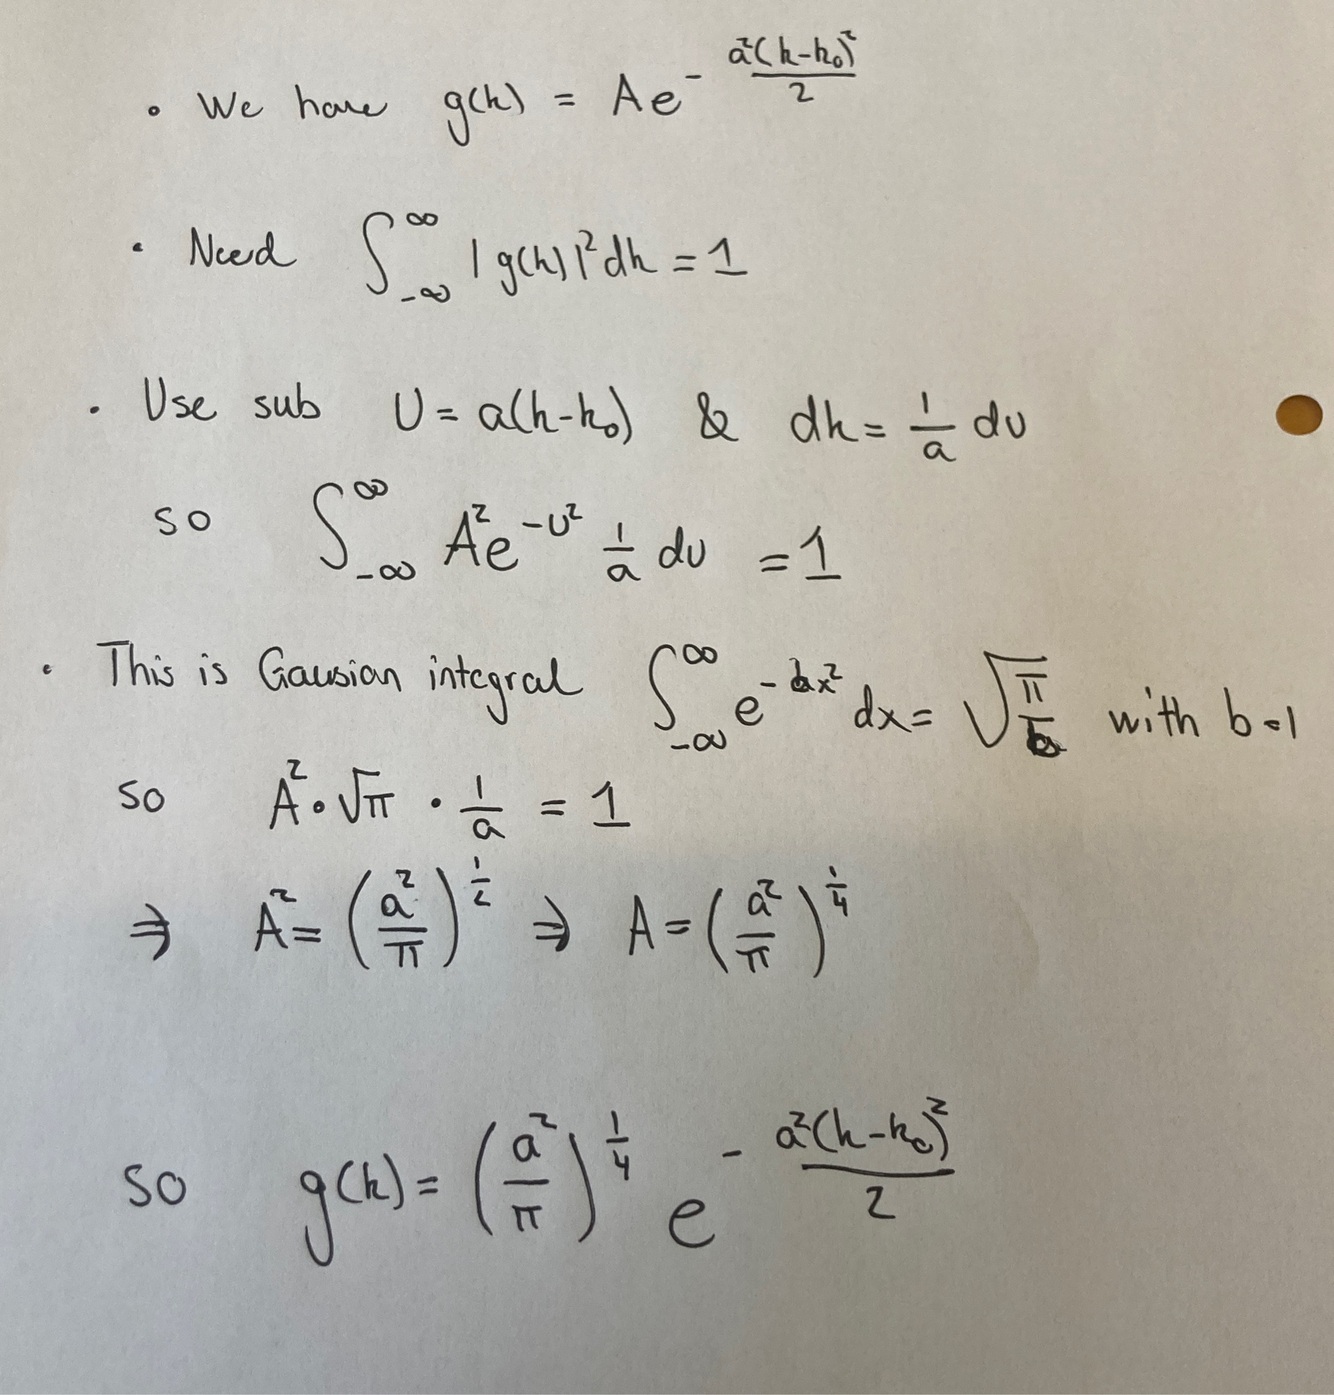 • We have g(k) = Ae^{-\frac{a²(k-k₀)²}{2}}
• Need ∫_{-∞}^{∞} |g(k)|² dk = 1
• Use sub U = a(k-k₀) & dk = \frac{1}{a} dU
so ∫_{-∞}^{∞} A²e^{-U²} \frac{1}{a} dU = 1
• This is Gausian integral ∫_{-∞}^{∞} e^{-bx²} dx = √{\frac{π}{b}} with b=1
so A² • √π • \frac{1}{a} = 1
⇒ A² = (\frac{a²}{π})^{\frac{1}{2}} ⇒ A = (\frac{a²}{π})^{\frac{1}{4}}
so g(k) = (\frac{a²}{π})^{\frac{1}{4}} e^{-\frac{a²(k-k₀)²}{2}}